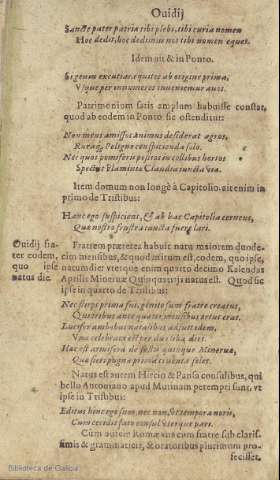 Ouidij
Sancte pater patria tibi plebs, tibi curia nomen
Hoc dedit, hoc dedimus nos tibi nomen eques.
Idem ait & in Ponto.
Si genus excutias, equites ab origine prima,
Vsque per innumeros inueniemur auos.
Patrimonium satis amplum habuisse constat,
quod ab eodem in Ponto sic ostenditur:
Non meus amissos animus desiderat agros,
Ruraq; Peligno conspicienda solo.
Nec quos pomiferis positos in collibus hortos
Spectat Flaminiæ Claudia iuncta viæ.
Item domum non longè à Capitolio. ait enim in
primo de Tristibus:
Hanc ego suspiciens, & ab hac Capitolia cernens,
Quæ nostro frustra iuncta fuere lari.
Ouidij fra-
ter eodem,
quo ipse
natus die.
Fratrem præterea habuit natu maiorem duode-
cim mensibus, & quod mirum est, eodem, quo ipse,
natum die: vterque enim quarto decimo Kalendas
Aprilis Mineruæ Quinquatrijs natus est. Quod sic
ipse in quarto de Tristibus:
Nec stirps prima fui, genito sum fratre creatus,
Qui tribus ante quater mensibus ortus erat.
Lucifer ambobus natalibus adfuit idem,
Vna celebrata est per duo liba dies.
Hæc est armiferæ de festis quinque Mineruæ,
Quæ fieri pugna prima cruenta solet.
Natus est autem Hircio & Pansa consulibus, qui
bello Antoniano apud Mutinam perempti sunt, vt
ipse in Tristibus:
Editus hinc ego sum, nec non, vt tempora noris,
Cum cecidit fato consul vterque pari.
Cùm autem Romæ vnà cum fratre sub claris-
simis & grammaticis, & oratoribus plurimum pro-
fecisset.
Biblioteca de Galicia